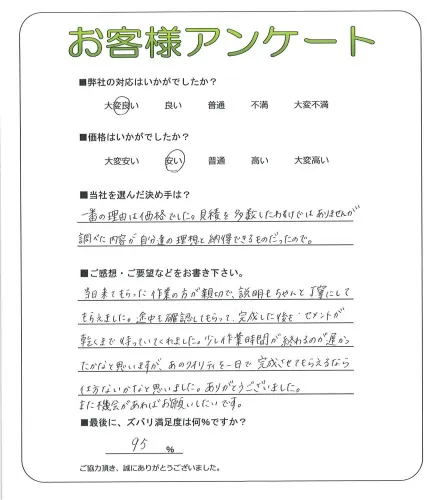 お客様アンケート
■弊社の対応はいかがでしたか？
大変良い 良い 普通 不満 大変不満
■価格はいかがでしたか？
大変安い 安い 普通 高い 大変高い
■当社を選んだ決め手は？
一番の理由は価格でした。見積を多数したわけではありませんが
調べた内容が自分達の理想と納得できるものだったので。
■ご感想・ご要望などをお書き下さい。
当日来てもらった作業の方が親切で、説明もちゃんと丁寧にして
もらえました。途中も確認してもらって、完成した後もセメントが
乾くまで待っていてくれました。少し作業時間が終わるのが遅かっ
たかなと思いますが、あのクオリティを一日で完成させてもらえるなら
仕方ないかなと思いました。ありがとうございました。
また機会があればお願いしたいです。
■最後に、ズバリ満足度は何%ですか？
95 %
ご協力頂き、誠にありがとうございました。